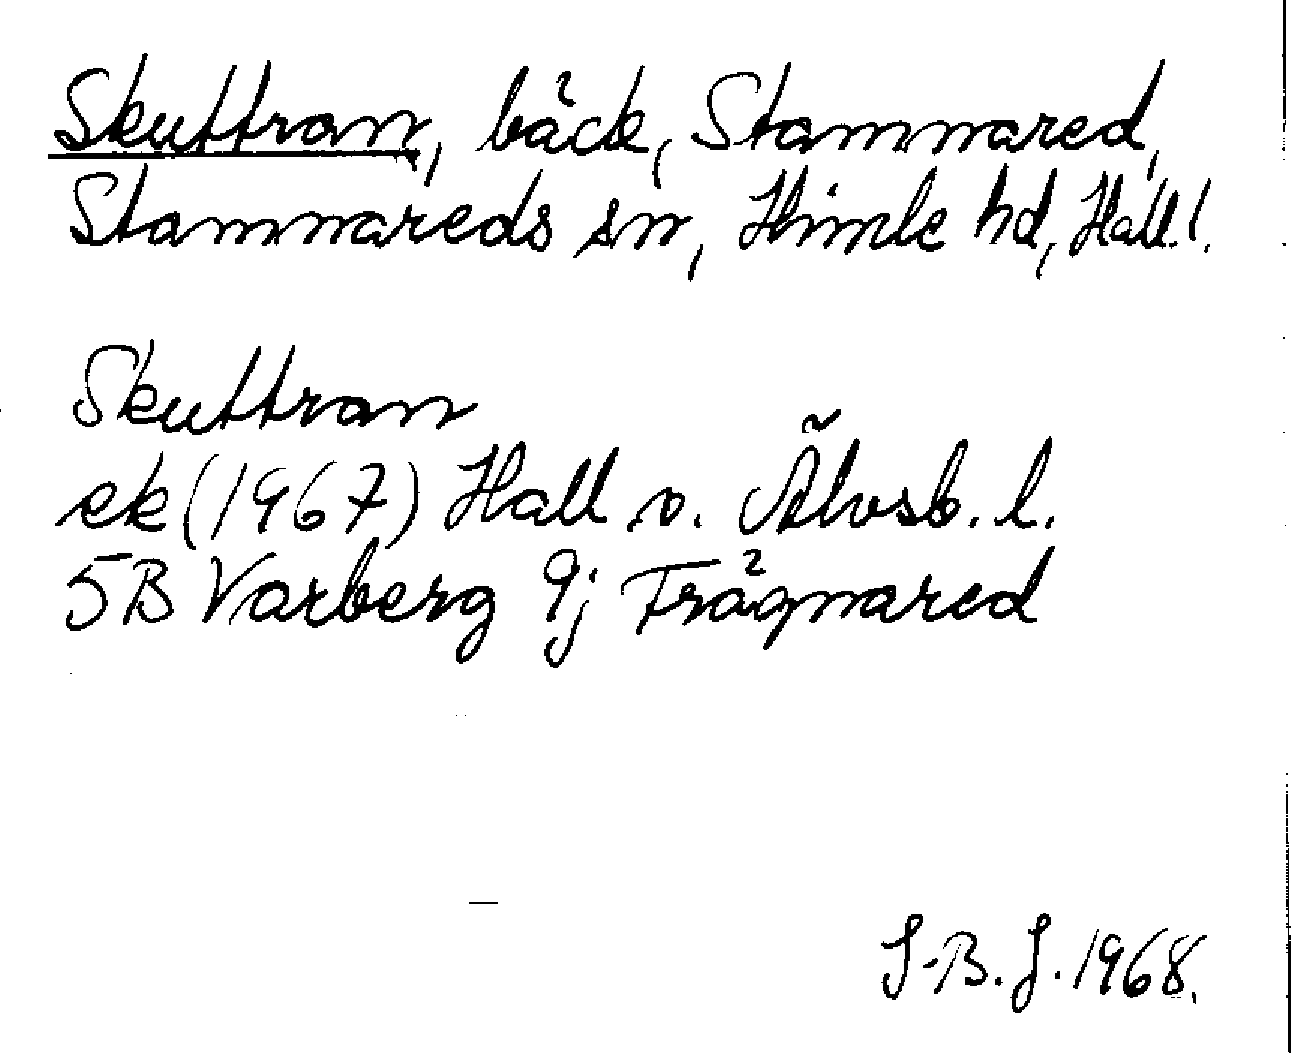 Skuttran, bäck, Stamnared,
Stamnareds sn, Himle hd, Hall. l.
Skuttran
ek (1967) Hall o. Älvsb. l.
5B Varberg 9j Frägnared
J-B. J. 1968.